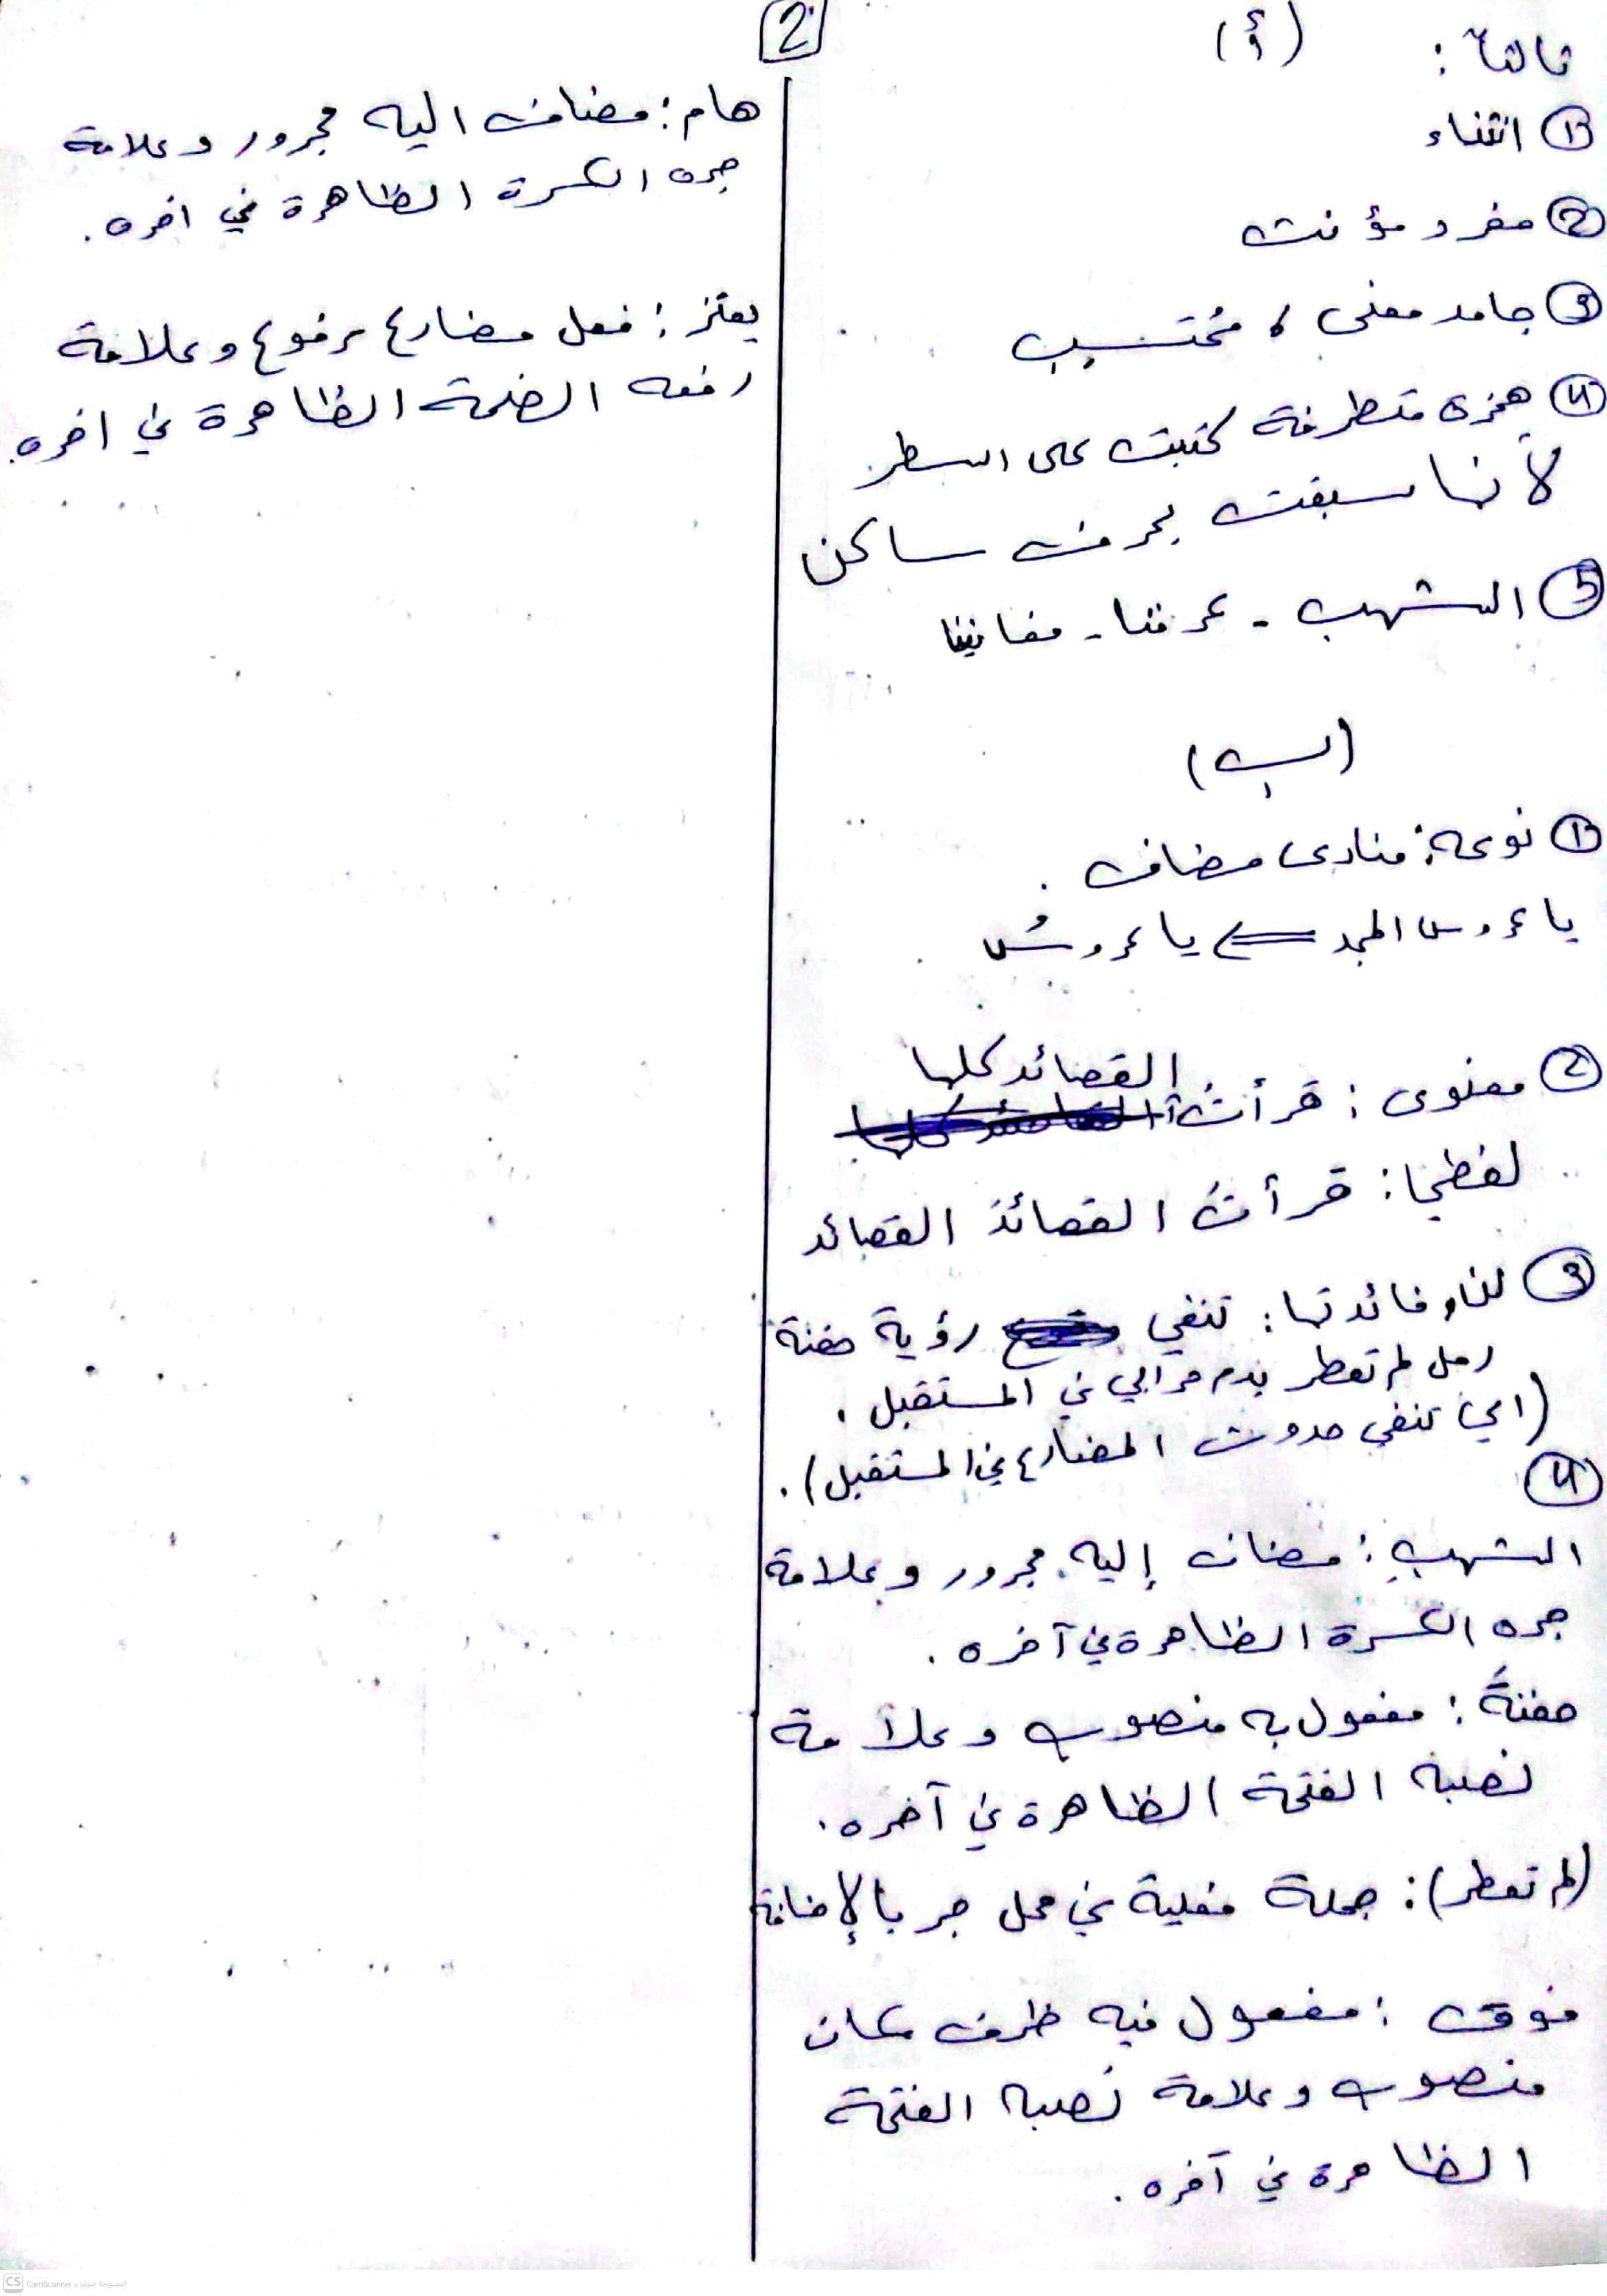 2
ثالثاً: (أ)
1 انثناء
2 مفرد مؤنث
3 جامد معنى، مُحتسِب
4 همزة متطرفة كتبت على السطر
لأنها سبقت بحرف ساكن
5 الشهب - عرفنا - مغانينا
(ب)
1 نوعه: منادى مضاف.
يا عروس المجد ⇐ يا عروسُ.
2 معنوي: قرأتُ القصائد كلها
لفظيا: قرأتُ القصائدَ القصائد
3 لن، وفائدتها: تنفي رؤية حفنة
رمل لم تعطر بدم حر ابي في المستقبل.
(اي تنفي حدوث المضارع في المستقبل).
4
الشهبِ: مضاف إليه مجرور وعلامة
جره الكسرة الظاهرة في آخره.
حفنةَ: مفعول به منصوب وعلامة
نصبه الفتحة الظاهرة في آخره.
(لم تعطر): جملة فعلية في محل جر بالإضافة
فوق: مفعول فيه ظرف مكان
منصوب وعلامة نصبه الفتحة
الظاهرة في آخره.
هام: مضاف اليه مجرور وعلامة
جره الكسرة الظاهرة في اخره.
يعتز: فعل مضارع مرفوع وعلامة
رفعه الضمة الظاهرة في اخره.
CS CamScanner الممسوحة ضوئيا بـ